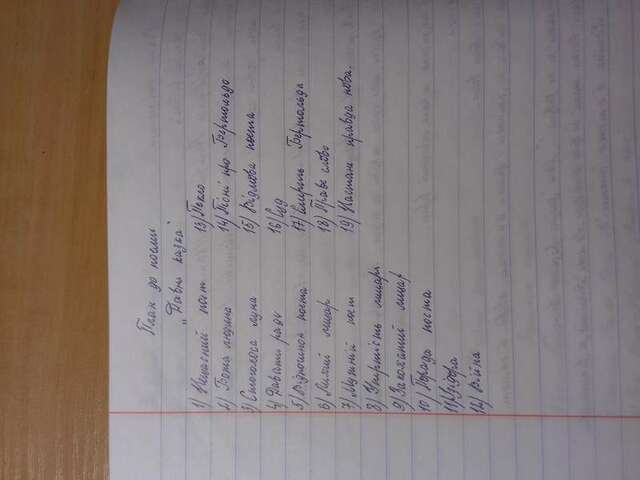 План до поеми
„Давня казка"
1) Нещасний поет
2) Бота людина
3) Стоголоса луна
4) Давати раду
5) Відпочинок поета
6) Лихий лицар
7) Мужній поет
8) Упертість лицаря
9) Закоханий лицар
10) Порада поета
11) Ізідора
12) Війна
13) Пекло
14) Пісні про Бертольдо
15) Відмова поета
16) Суд
17) Смерть Бертольда
18) Праве слово
19) Настане правда нова.